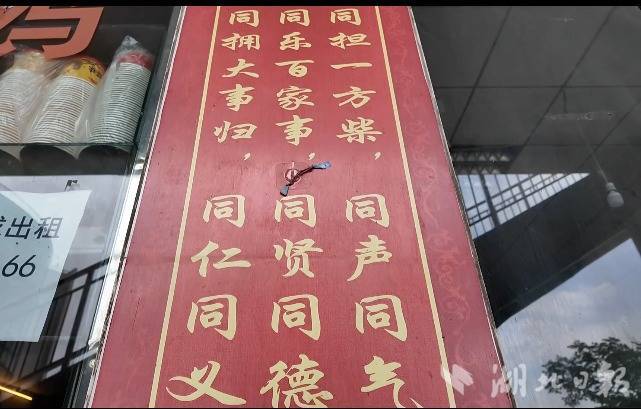 同担一方柴，同声同气
同乐百家事，同贤同德
同拥大事归，同仁同义
出租
66
湖北日報